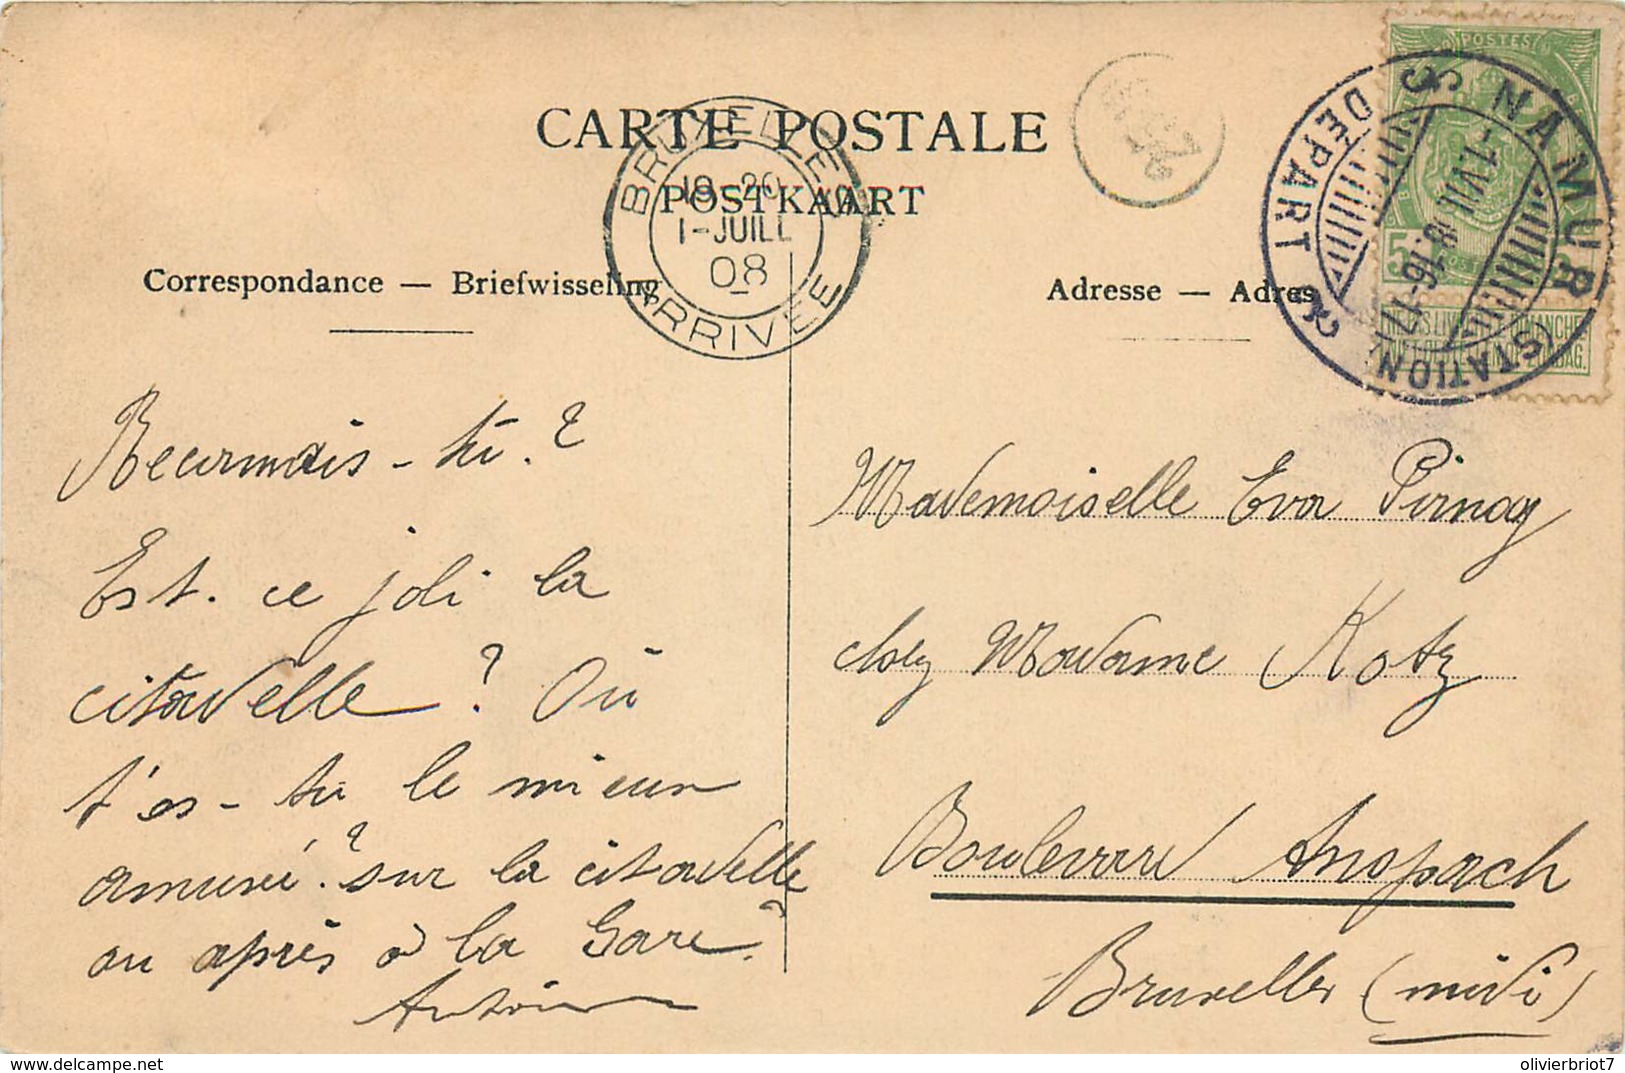 CARTE POSTALE
POSTKAART
BRUXELLES
19-20
1-JUILL
08
ARRIVEE
NAMUR
(STATION)
DÉPART
1.VII.08.16-17
POSTES
5
Correspondance — Briefwisseling
Adresse — Adres
Recurmais-tu ?
Est-ce joli la
citadelle ? Où
t'es-tu le mieux
amusé ? sur la citadelle
ou après à la Gare ?
Antoine
Mademoiselle Eva Pirnay
chez Madame Kotz
Boulevard Anspach
Bruxelles (midi)
olivierbriot7